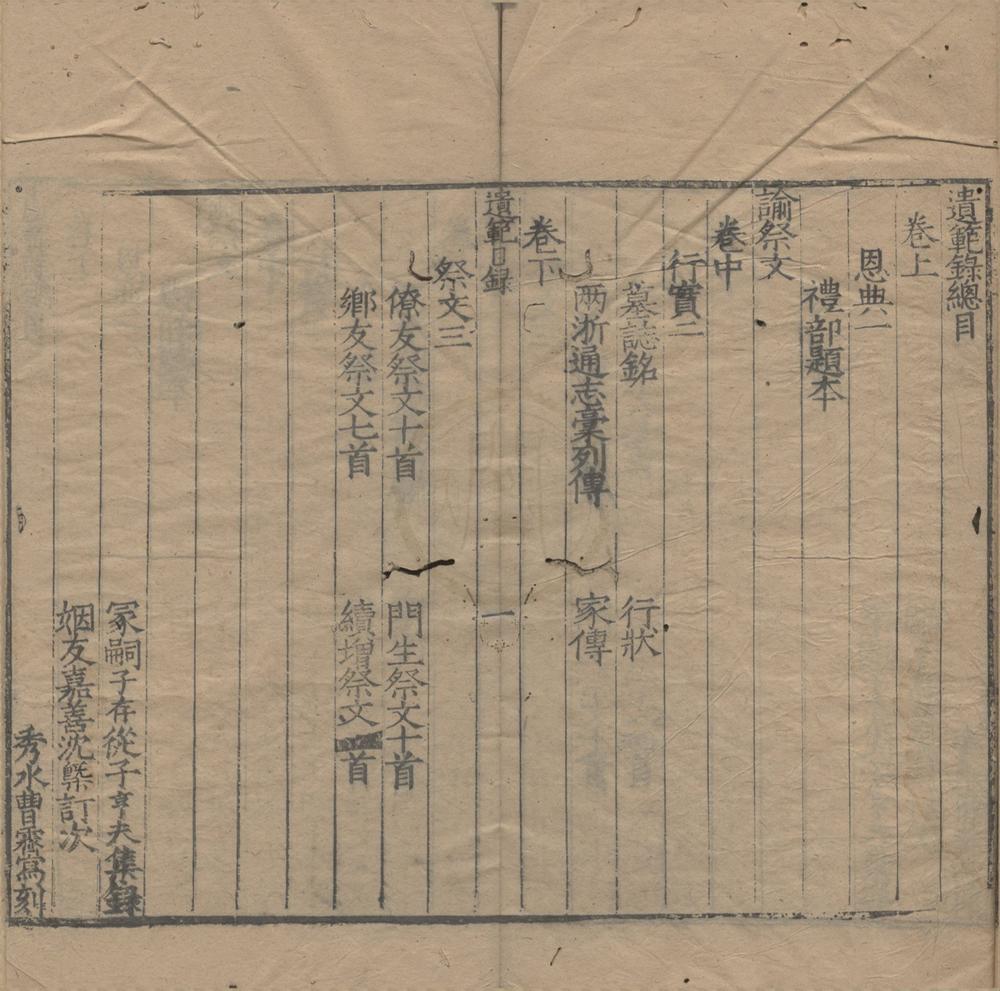 遺範錄總目
卷上
恩典一
禮部題本
諭祭文
卷中
行實二
墓誌銘 行狀
两浙通志稾列傳 家傳
卷下
遺範目録 一
祭文三
僚友祭文十首 門生祭文十首
鄉友祭文七首 續增祭文 首
冡嗣子存從子亨夫集録
姻友嘉善沈槩訂次
秀水曹霽寫刻